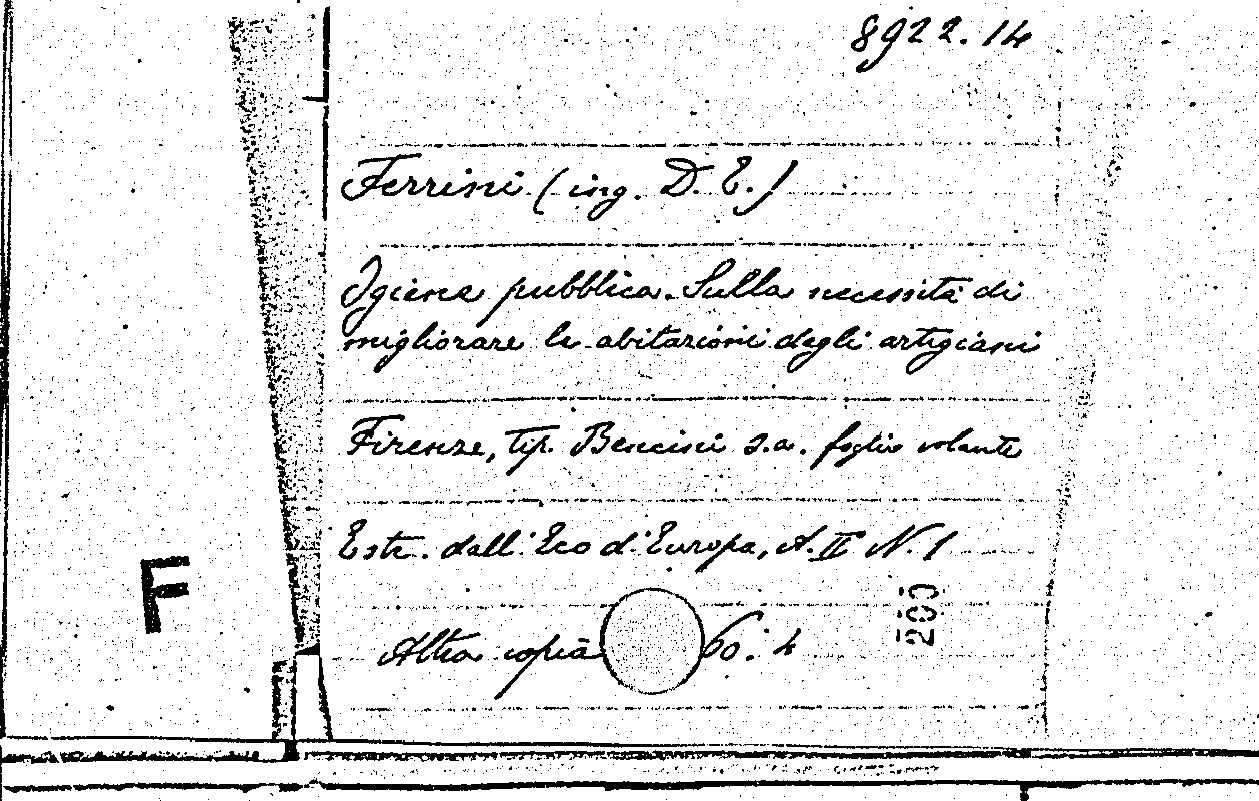 8922.14
Ferrini (ing. D. E.)
Igiene pubblica. Sulla necessità di
migliorare le abitazioni degli artigiani
Firenze, tip. Bencini s.a. foglio volante
Estr. dall'Eco d'Europa, A. II N. 1
F
203
Altra copia 60. 4